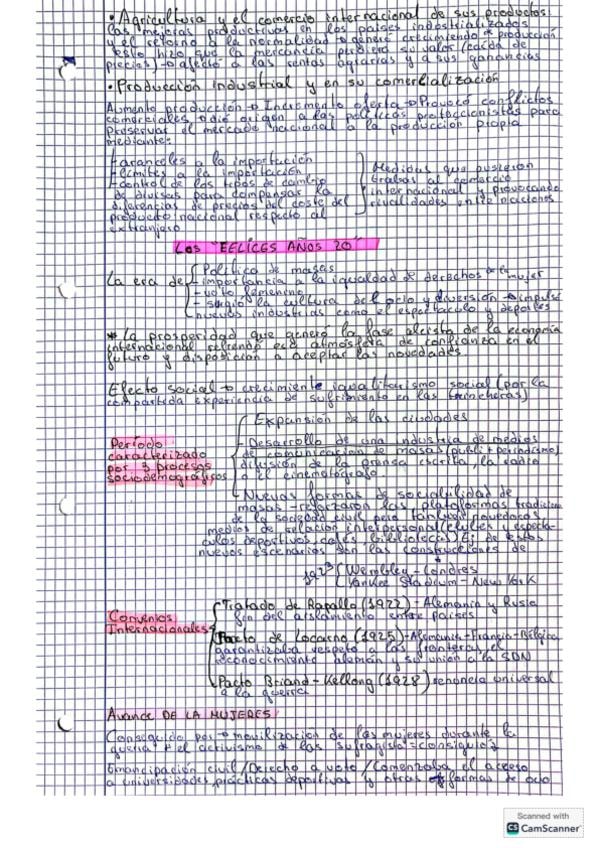 • Agricultura y el comercio internacional de sus productos:
Las mejoras productivas en los países industrializados
y el retorno a la normalidad → generó crecimiento de producción
esto hizo que la mercancía perdiera su valor (caída de
precios) → afectó a las rentas agrarias y a sus ganancias
• Producción industrial y en su comercialización
Aumento producción → Incremento oferta → Provocó conflictos
comerciales → dió origen a las políticas proteccionistas para
preservar el mercado nacional a la producción propia
mediante:
- aranceles a la importación
- límites a la importación
- control de los tipos de cambio
de divisas para compensar la
diferencias de precios del coste del
producto nacional respecto al
extranjero
Medidas que pusieron
trabas al comercio
internacional y provocando
rivalidades entre naciones
Los "FELICES AÑOS 20"
La era de
- Política de masas
- importancia a la igualdad de derechos de la mujer
- voto femenino
- surgió la cultura del ocio y diversión → impulsó
nuevas industrias como el espectáculo y deportes
* La prosperidad que generó la fase alcista de la economía
internacional refrendó esa atmósfera de confianza en el
futuro y disposición a aceptar las novedades
Efecto social → crecimiento igualitarismo social (por la
compartida experiencia de sufrimiento en las trincheras)
Período
caracterizado
por 3 procesos
sociodemográficos
- Expansión de las ciudades
- Desarrollo de una industria de medios
de comunicación de masas (publi + periodismo)
difusión de la prensa escrita, la radio
o el cinematógrafo
- Nuevas formas de sociabilidad de
masas - reforzaron las plataformas
de la sociedad civil pero también novedosas
medios de relación interpersonal (clubes y espectá-
culos deportivos, cafés, bibliotecas) Ej de estos
nuevos escenarios son las construcciones de
1923
Wembley - Londres
Yankee Stadium - New York
Convenios
Internacionales
- Tratado de Rapallo (1922) - Alemania y Rusia
fin del aislamiento entre países
- Pacto de Locarno (1925) - Alemania - Francia - Bélgica
garantizaba respeto a las fronteras, el
reconocimiento alemán y su unión a la SDN
- Pacto Briand - Kellong (1928) renuncia universal
a la guerra
Avance DE LA MUJERES:
Conseguido por → movilización de las mujeres durante la
guerra + el activismo de las sufragista = consiguió
Emancipación civil / Derecho a voto / Comenzaba el acceso
a universidades, prácticas deportivas y otras formas de ocio
Scanned with
CS CamScanner